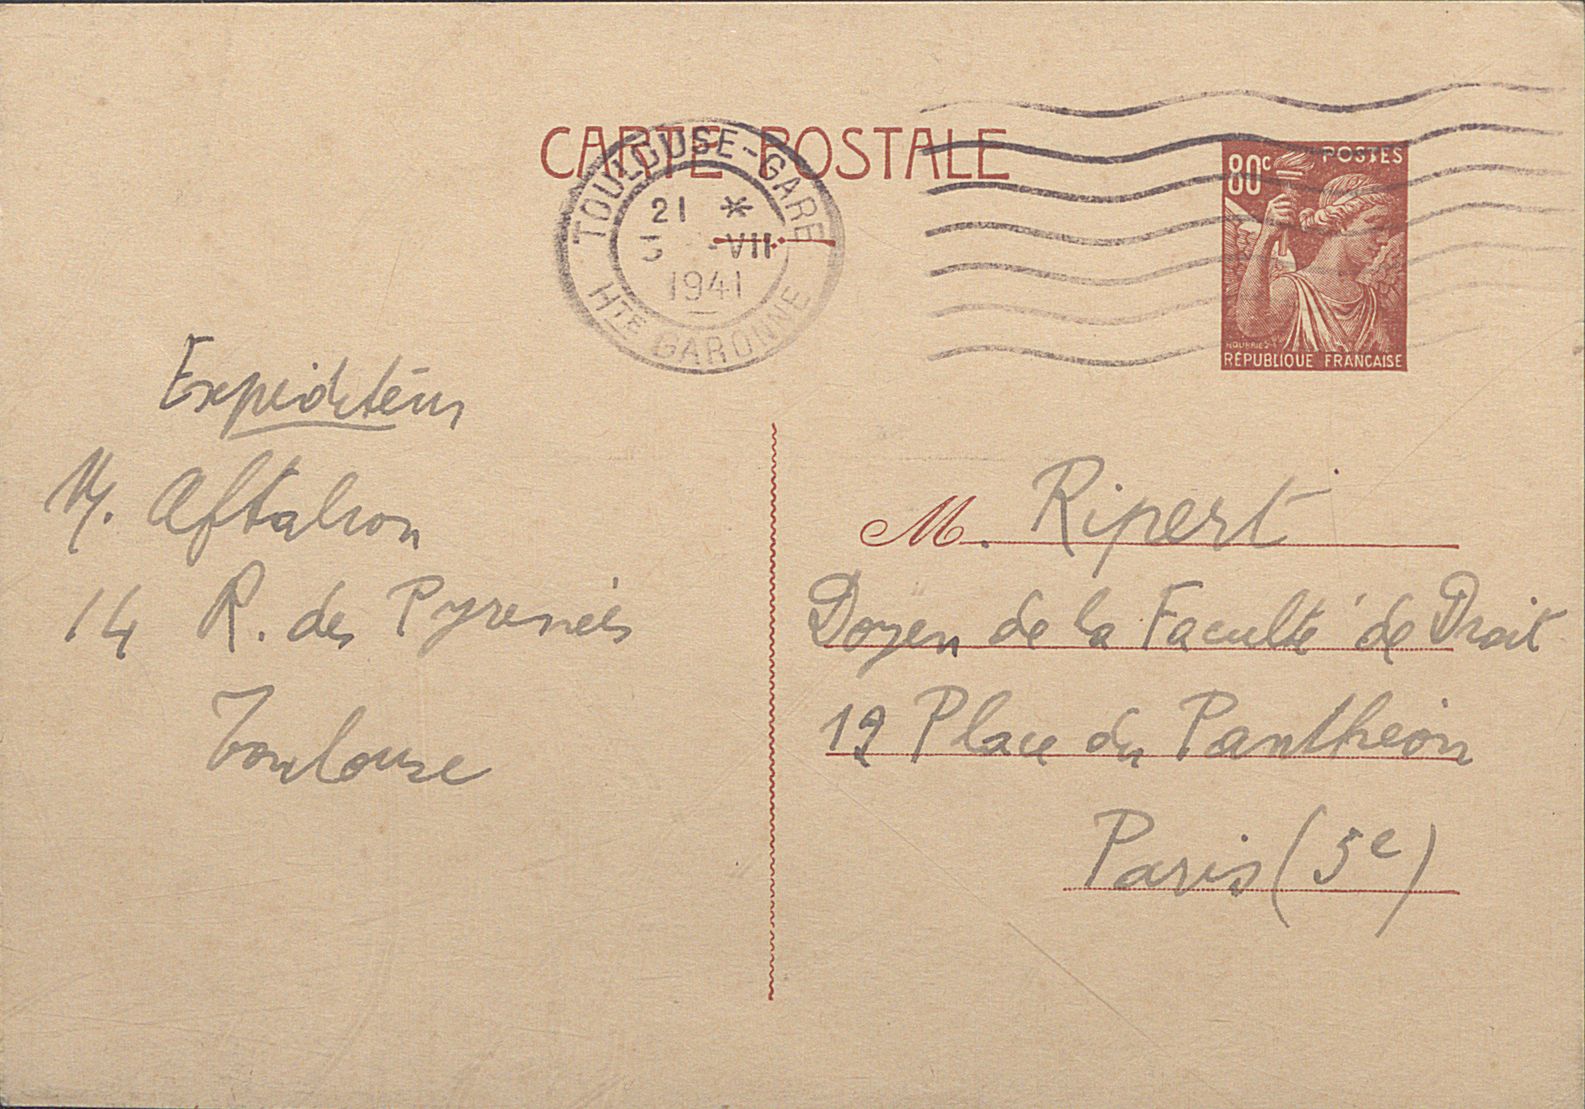 CARTE POSTALE
TOULOUSE-GARE
21 *
5 -VII
1941
HTE GARONNE
80c POSTES
RÉPUBLIQUE FRANCAISE
Expéditeur
M. Aftalion
14 R. des Pyrenées
Toulouse
M. Ripert
Doyen de la Faculté de Droit
12 Place du Panthéon
Paris (5e)